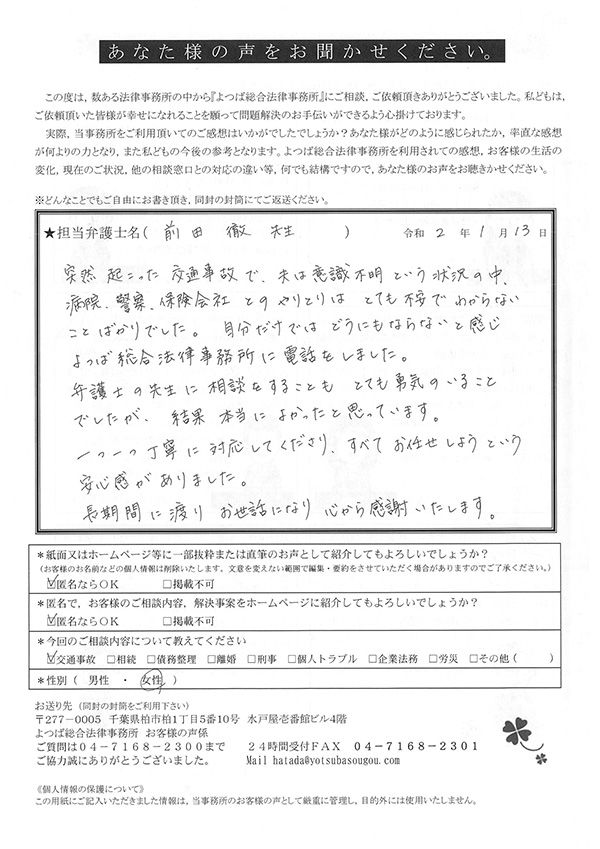 あなた様の声をお聞かせください。
この度は，数ある法律事務所の中から『よつば総合法律事務所』にご相談，ご依頼頂きありがとうございました。私どもは，
ご依頼頂いた皆様が幸せになれることを願って問題解決のお手伝いができるよう心掛けております。
実際，当事務所をご利用頂いてのご感想はいかがでしたでしょうか？あなた様がどのように感じられたか，率直な感想
が何よりの力となり，また私どもの今後の参考となります。よつば総合法律事務所を利用されての感想，お客様の生活の
変化，現在のご状況，他の相談窓口との対応の違い等，何でも結構ですので，あなた様のお声をお聴きかせください。
※どんなことでもご自由にお書き頂き，同封の封筒にてご返送ください。
★担当弁護士名（ 前田 徹 先生 ） 令和 2 年 1 月 13 日
突然 起こった 交通事故で、夫は意識不明という状況の中、
病院、警察、保険会社 とのやりとりは とても不安でわからない
ことばかりでした。 自分だけでは どうにもならないと感じ
よつば総合法律事務所に電話をしました。
弁護士の先生に相談をすることも とても勇気のいること
でしたが、結果 本当に よかったと思っています。
一つ一つ丁寧に対応してくださり、すべてお任せしようという
安心感がありました。
長期間に渡り お世話になり 心から感謝いたします。
＊紙面又はホームページ等に一部抜粋または直筆のお声として紹介してもよろしいでしょうか？
（お客様のお名前などの個人情報は削除いたします。文意を変えない範囲で編集・要約をさせていただく場合がありますのでご了承ください。）
☑匿名ならOK □掲載不可
＊匿名で，お客様のご相談内容，解決事案をホームページに紹介してもよろしいでしょうか？
☑匿名ならOK □掲載不可
＊今回のご相談内容について教えてください
☑交通事故 □相続 □債務整理 □離婚 □刑事 □個人トラブル □企業法務 □労災 □その他（ ）
＊性別（ 男性 ・ 女性 ）
お送り先（同封の封筒をご利用下さい）
〒277-0005 千葉県柏市柏1丁目5番10号 水戸屋壱番館ビル4階
よつば総合法律事務所 お客様の声係
ご質問は04-7168-2300まで 24時間受付FAX 04-7168-2301
ご協力誠にありがとうございました。 Mail hatada@yotsubasougou.com
《個人情報の保護について》
この用紙にご記入いただきました情報は，当事務所のお客様の声として厳重に管理し，目的外には使用いたしません。